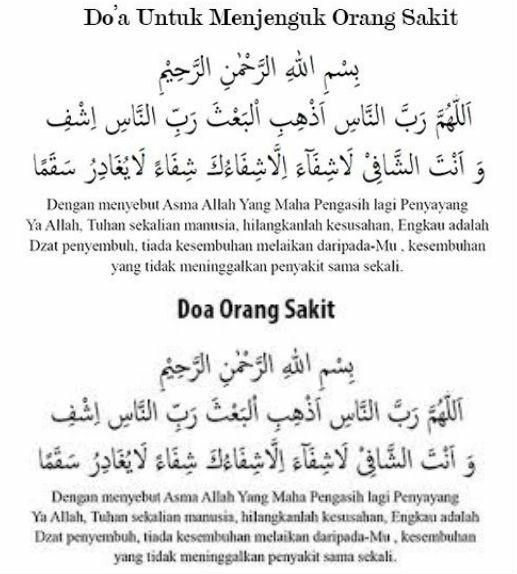 Do'a Untuk Menjenguk Orang Sakit
بِسْمِ اللهِ الرَّحْمٰنِ الرَّحِيْمِ
اَللّٰهُمَّ رَبَّ النَّاسِ أَذْهِبِ الْبَعْثَ رَبِّ النَّاسِ اِشْفِ
وَ اَنْتَ الشَّافِيْ لَاشِفَآءَ اِلَّاشِفَاءُكَ شِفَاءً لَايُغَادِرُ سَقَمًا
Dengan menyebut Asma Allah Yang Maha Pengasih lagi Penyayang
Ya Allah, Tuhan sekalian manusia, hilangkanlah kesusahan, Engkau adalah
Dzat penyembuh, tiada kesembuhan melaikan daripada-Mu , kesembuhan
yang tidak meninggalkan penyakit sama sekali.
Doa Orang Sakit
بِسْمِ اللهِ الرَّحْمٰنِ الرَّحِيْمِ
اَللّٰهُمَّ رَبَّ النَّاسِ أَذْهِبِ الْبَعْثَ رَبِّ النَّاسِ اِشْفِ
وَ اَنْتَ الشَّافِيْ لَاشِفَآءَ اِلَّاشِفَاءُكَ شِفَاءً لَايُغَادِرُ سَقَمًا
Dengan menyebut Asma Allah Yang Maha Pengasih lagi Penyayang
Ya Allah, Tuhan sekalian manusia, hilangkanlah kesusahan, Engkau adalah
Dzat penyembuh, tiada kesembuhan melaikan daripada-Mu , kesembuhan
yang tidak meninggalkan penyakit sama sekali.